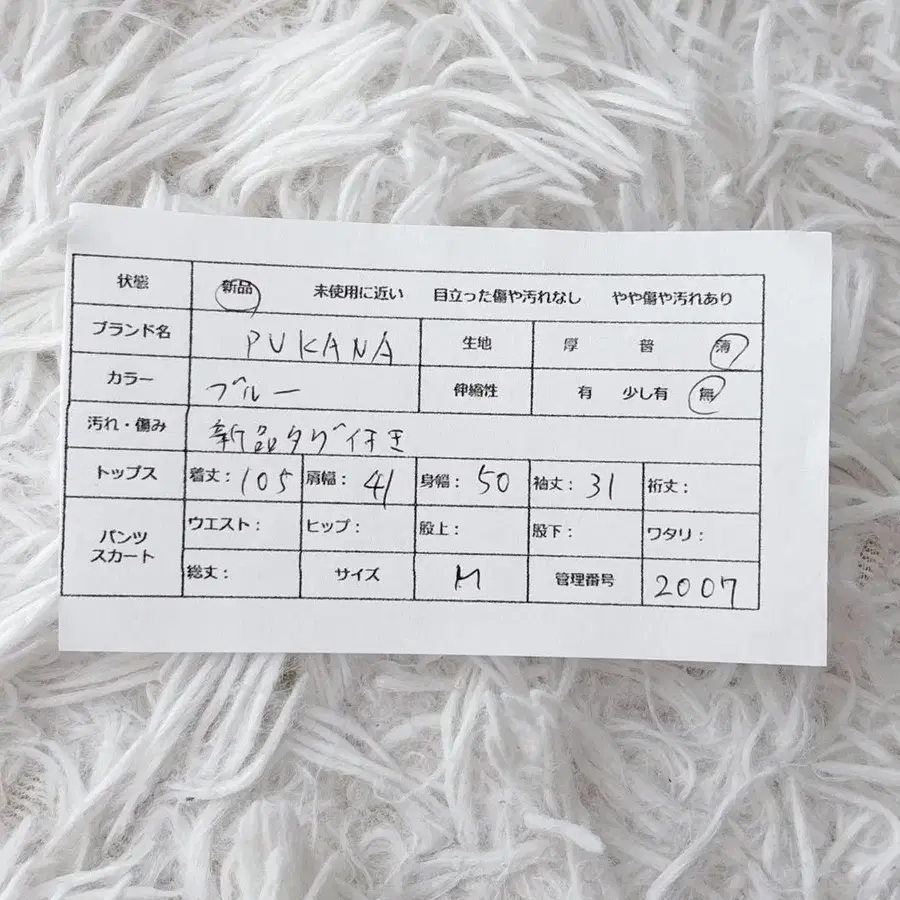 状態 新品 未使用に近い 目立った傷や汚れなし やや傷や汚れあり
ブランド名 PUKANA 生地 厚 普 薄
カラー ブルー 伸縮性 有 少し有 無
汚れ・傷み 新品タグ付き
トップス 着丈：105 肩幅：41 身幅：50 袖丈：31 裄丈：
パンツ スカート ウエスト： ヒップ： 股上： 股下： ワタリ：
総丈： サイズ M 管理番号 2007